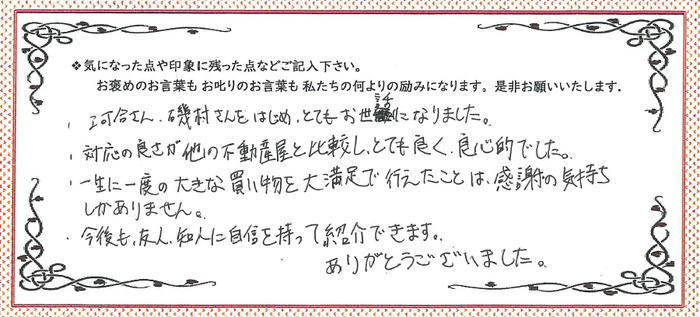 ❖気になった点や印象に残った点などご記入下さい。
お褒めのお言葉も お叱りのお言葉も 私たちの何よりの励みになります。是非お願いいたします。
・河合さん、磯村さんをはじめ、とてもお世話になりました。
・対応の良さが他の不動産屋と比較し、とても良く、良心的でした。
・一生に一度の大きな買い物を大満足で行えたことは、感謝の気持ち
しかありません。
・今後も、友人、知人に自信を持って紹介できます。
ありがとうございました。